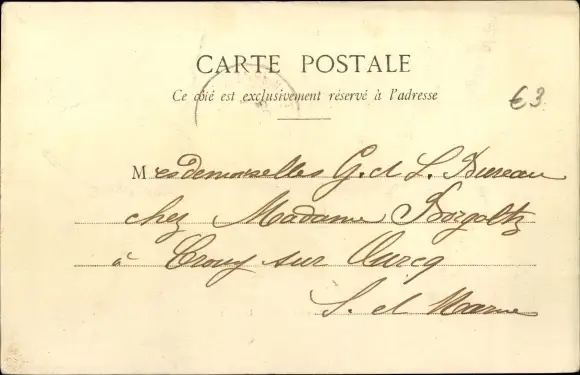 CARTE POSTALE
Ce côté est exclusivement réservé à l'adresse
€3
Mesdemoiselles G. et L. Bureau
chez Madame Borgoltz
à Crouy sur Ourcq
S. et Marne